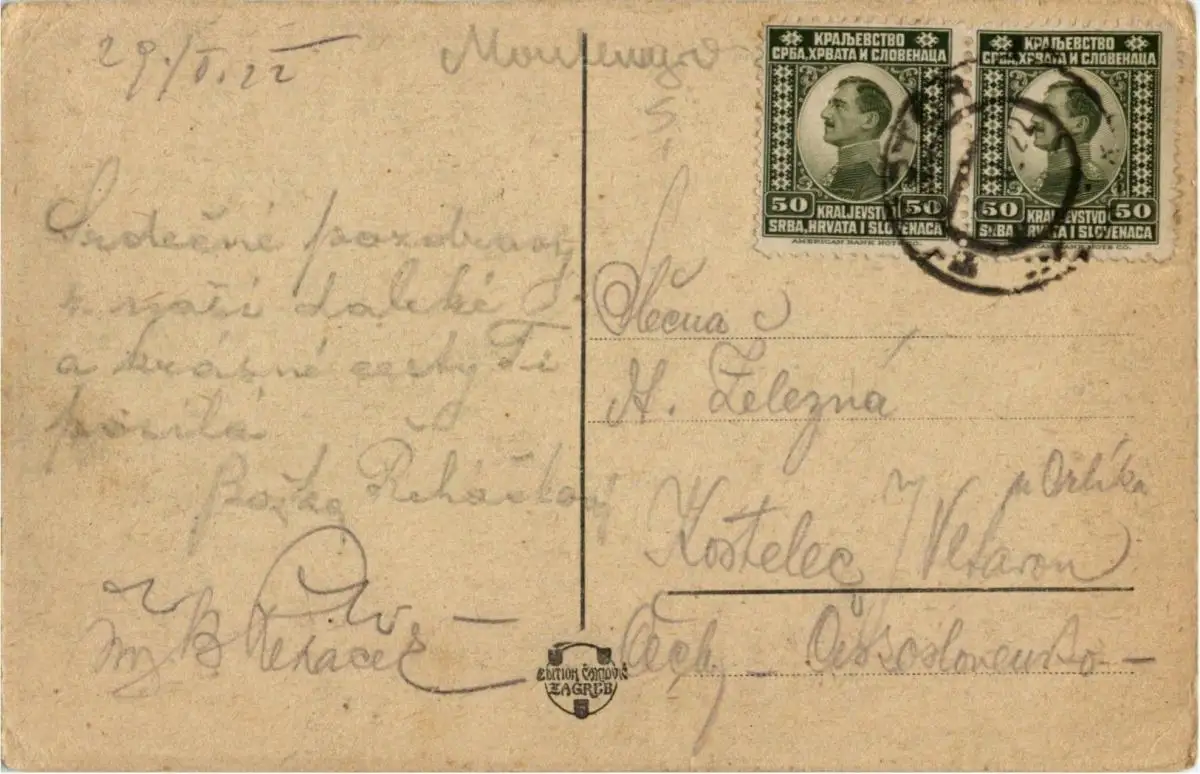 Montenegro
Srdečné pozdravy
z naší daleké
a krásné cesty Ti
posílá
Božka Řeháčková
Řeháček
КРАЉЕВСТВО
СРБА, ХРВАТА И СЛОВЕНАЦА
50 50
KRALJEVSTVO
SRBA, HRVATA I SLOVENACA
AMERICAN BANK NOTE CO.
КРАЉЕВСТВО
СРБА, ХРВАТА И СЛОВЕНАЦА
50 50
KRALJEVSTVO
SRBA, HRVATA I SLOVENACA
BANK NOTE CO.
Slečna
H. Železná
Kostelec / Vltavou
u Orlíka
Čechy – Československo –
EDITION ČAKLOVIĆ
ZAGREB